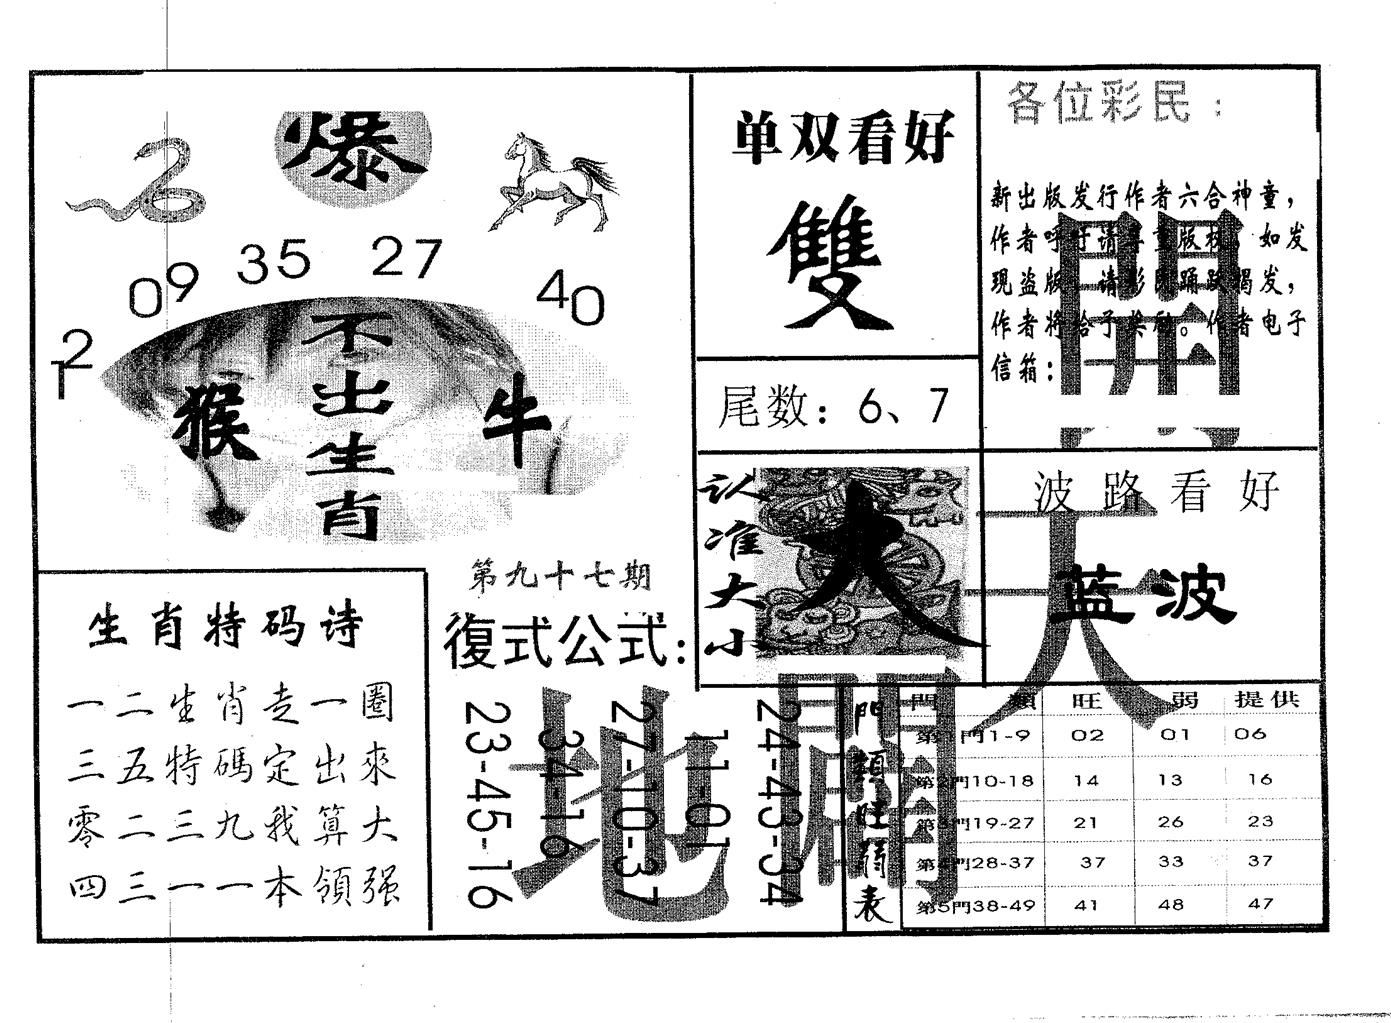 爆
12 09 35 27 40
不出生肖
猴
牛
单双看好
雙
尾数：6、7
各位彩民：
新出版发行作者六合神童，
作者呼吁请尊重版权。如发
现盗版，请彩民踊跃揭发，
作者将给予奖励。作者电子
信箱：
認准大小
大
波路看好
蓝波
開天
生肖特码诗
一二生肖走一圈
三五特碼定出來
零二三九我算大
四三一一本領强
第九十七期
復式公式：
23-45-16
34-16
27-10-37
11-01
24-43-34
地
開
門類旺弱表
門 類 旺 弱 提供
第1門1-9 02 01 06
第2門10-18 14 13 16
第3門19-27 21 26 23
第4門28-37 37 33 37
第5門38-49 41 48 47